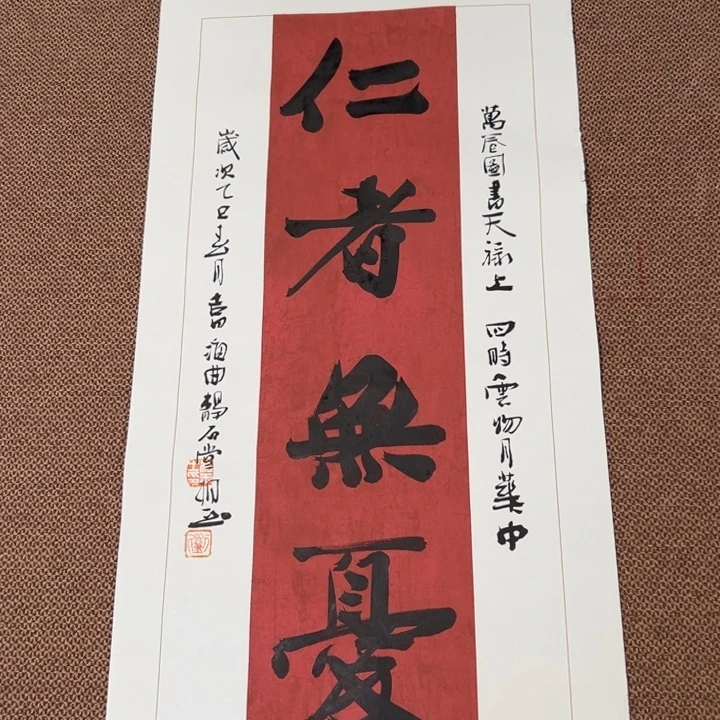 萬卷圖書天祿上 四時雲物月華中
仁者無憂
歲次乙巳春月書 曲靜石堂